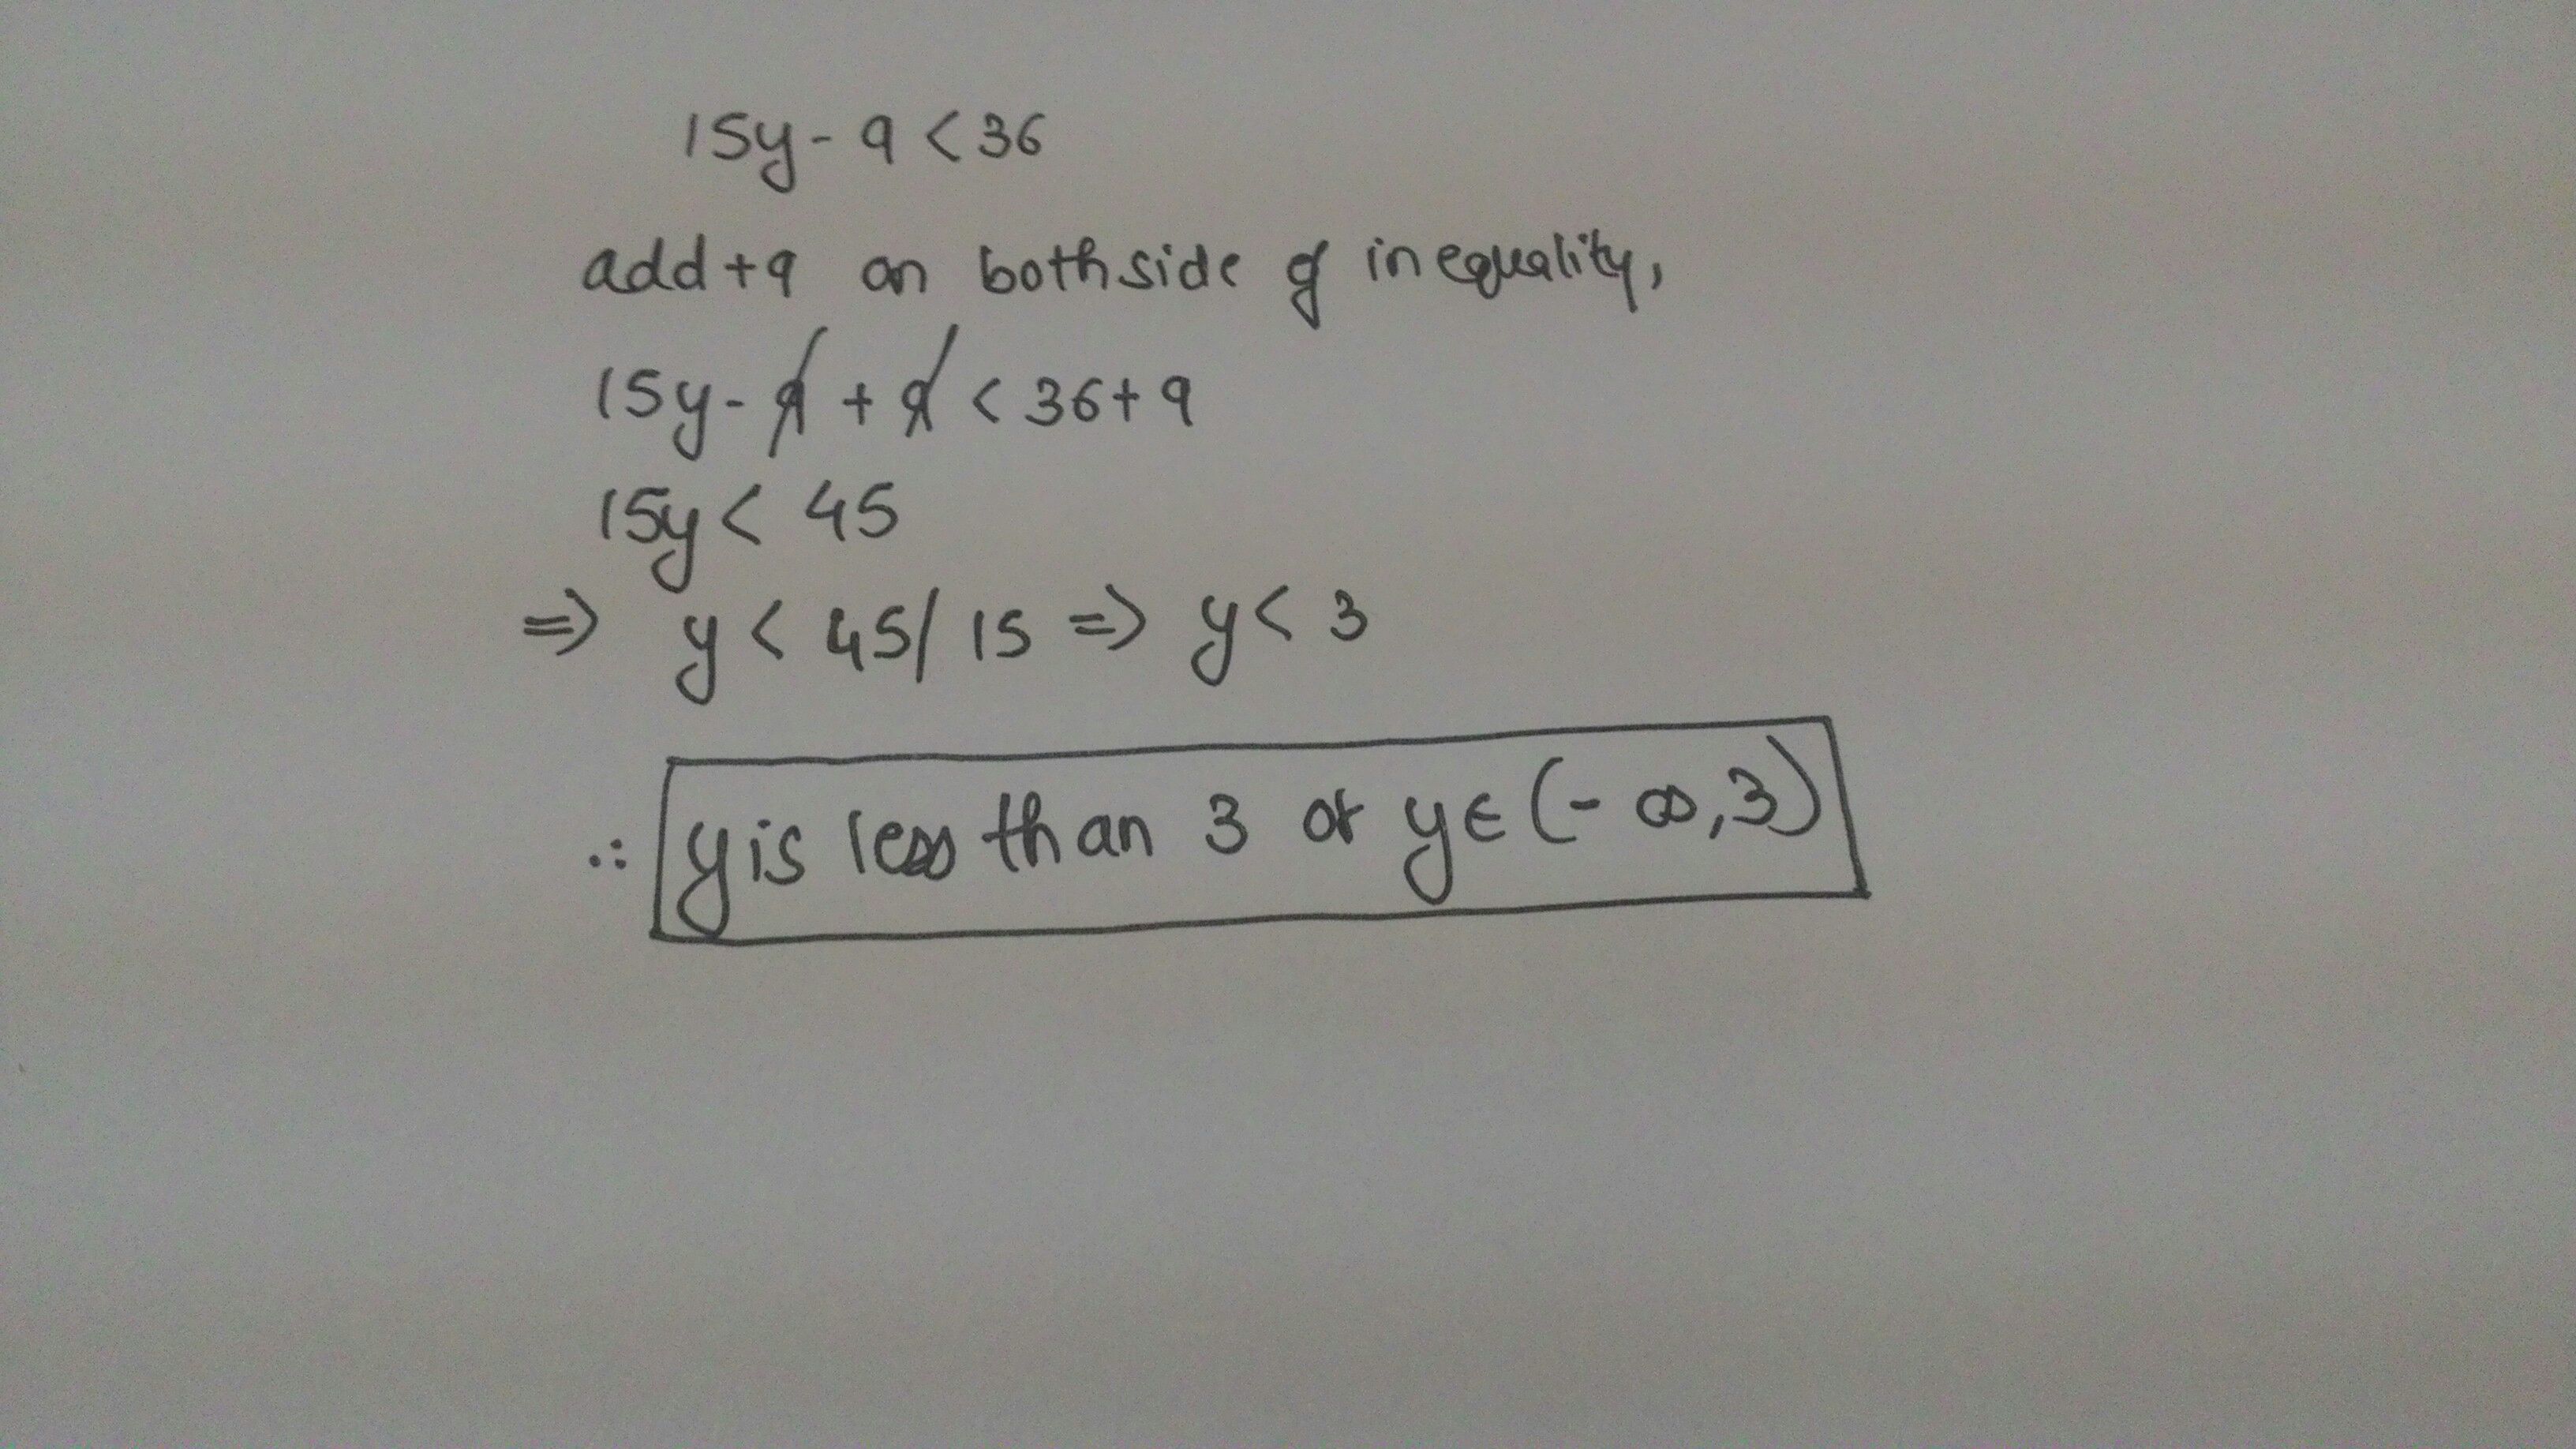 15y - 9 < 36
add +9 on both side of inequality,
15y - 9 + 9 < 36 + 9
15y < 45
=> y < 45/15 => y < 3
∴ y is less than 3 or y ∈ (-∞, 3)